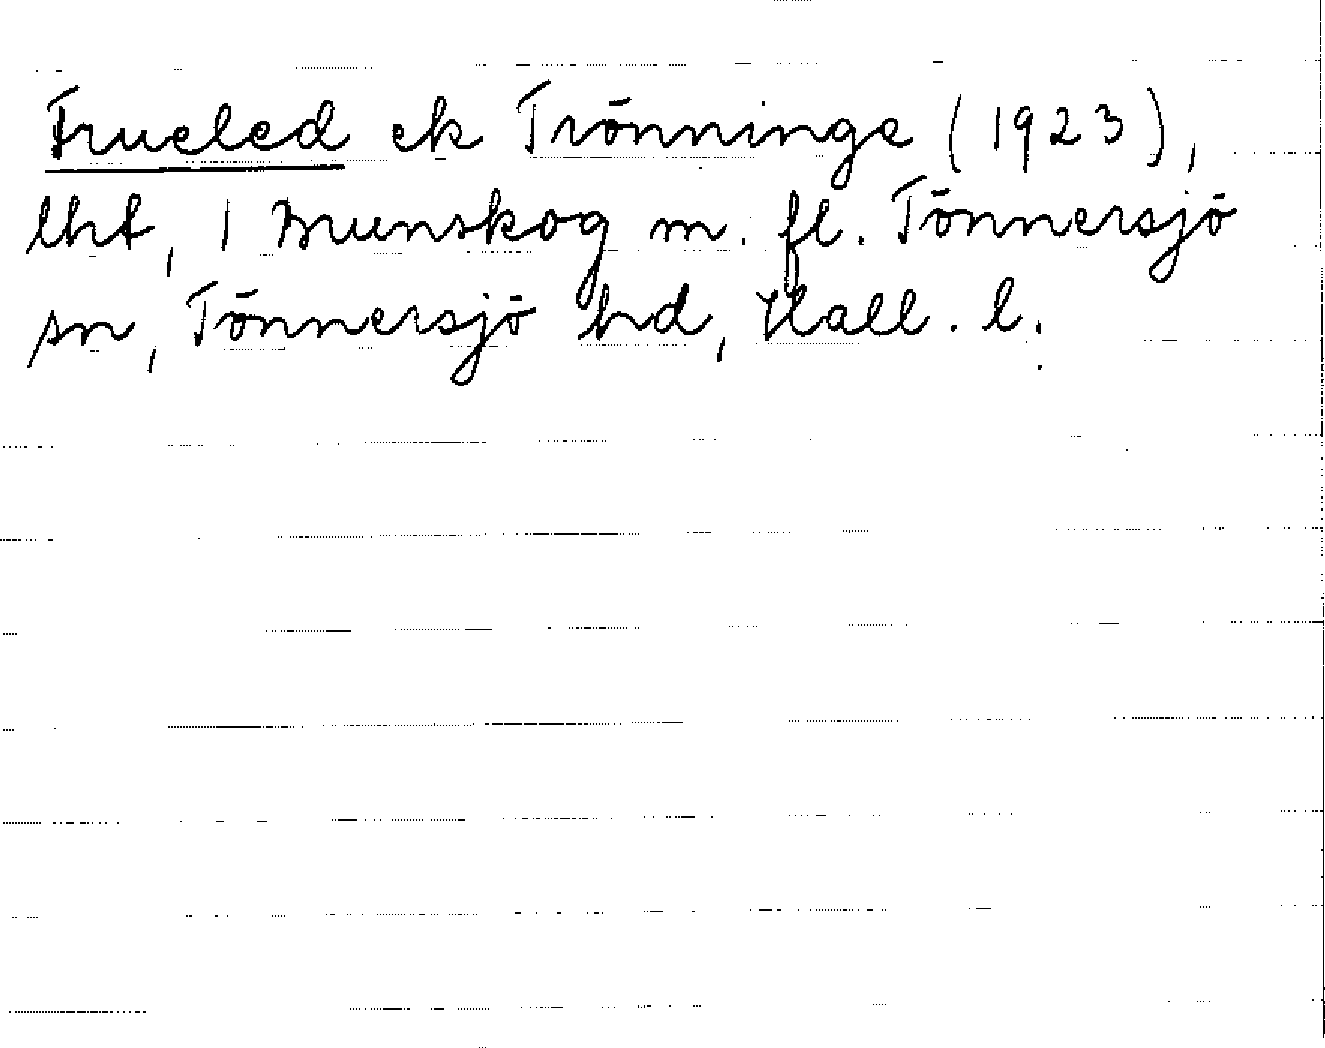 Frueled ek Trönninge (1923),
lht, 1 Brunskog m. fl. Tönnersjö
sn, Tönnersjö hd, Hall. l.